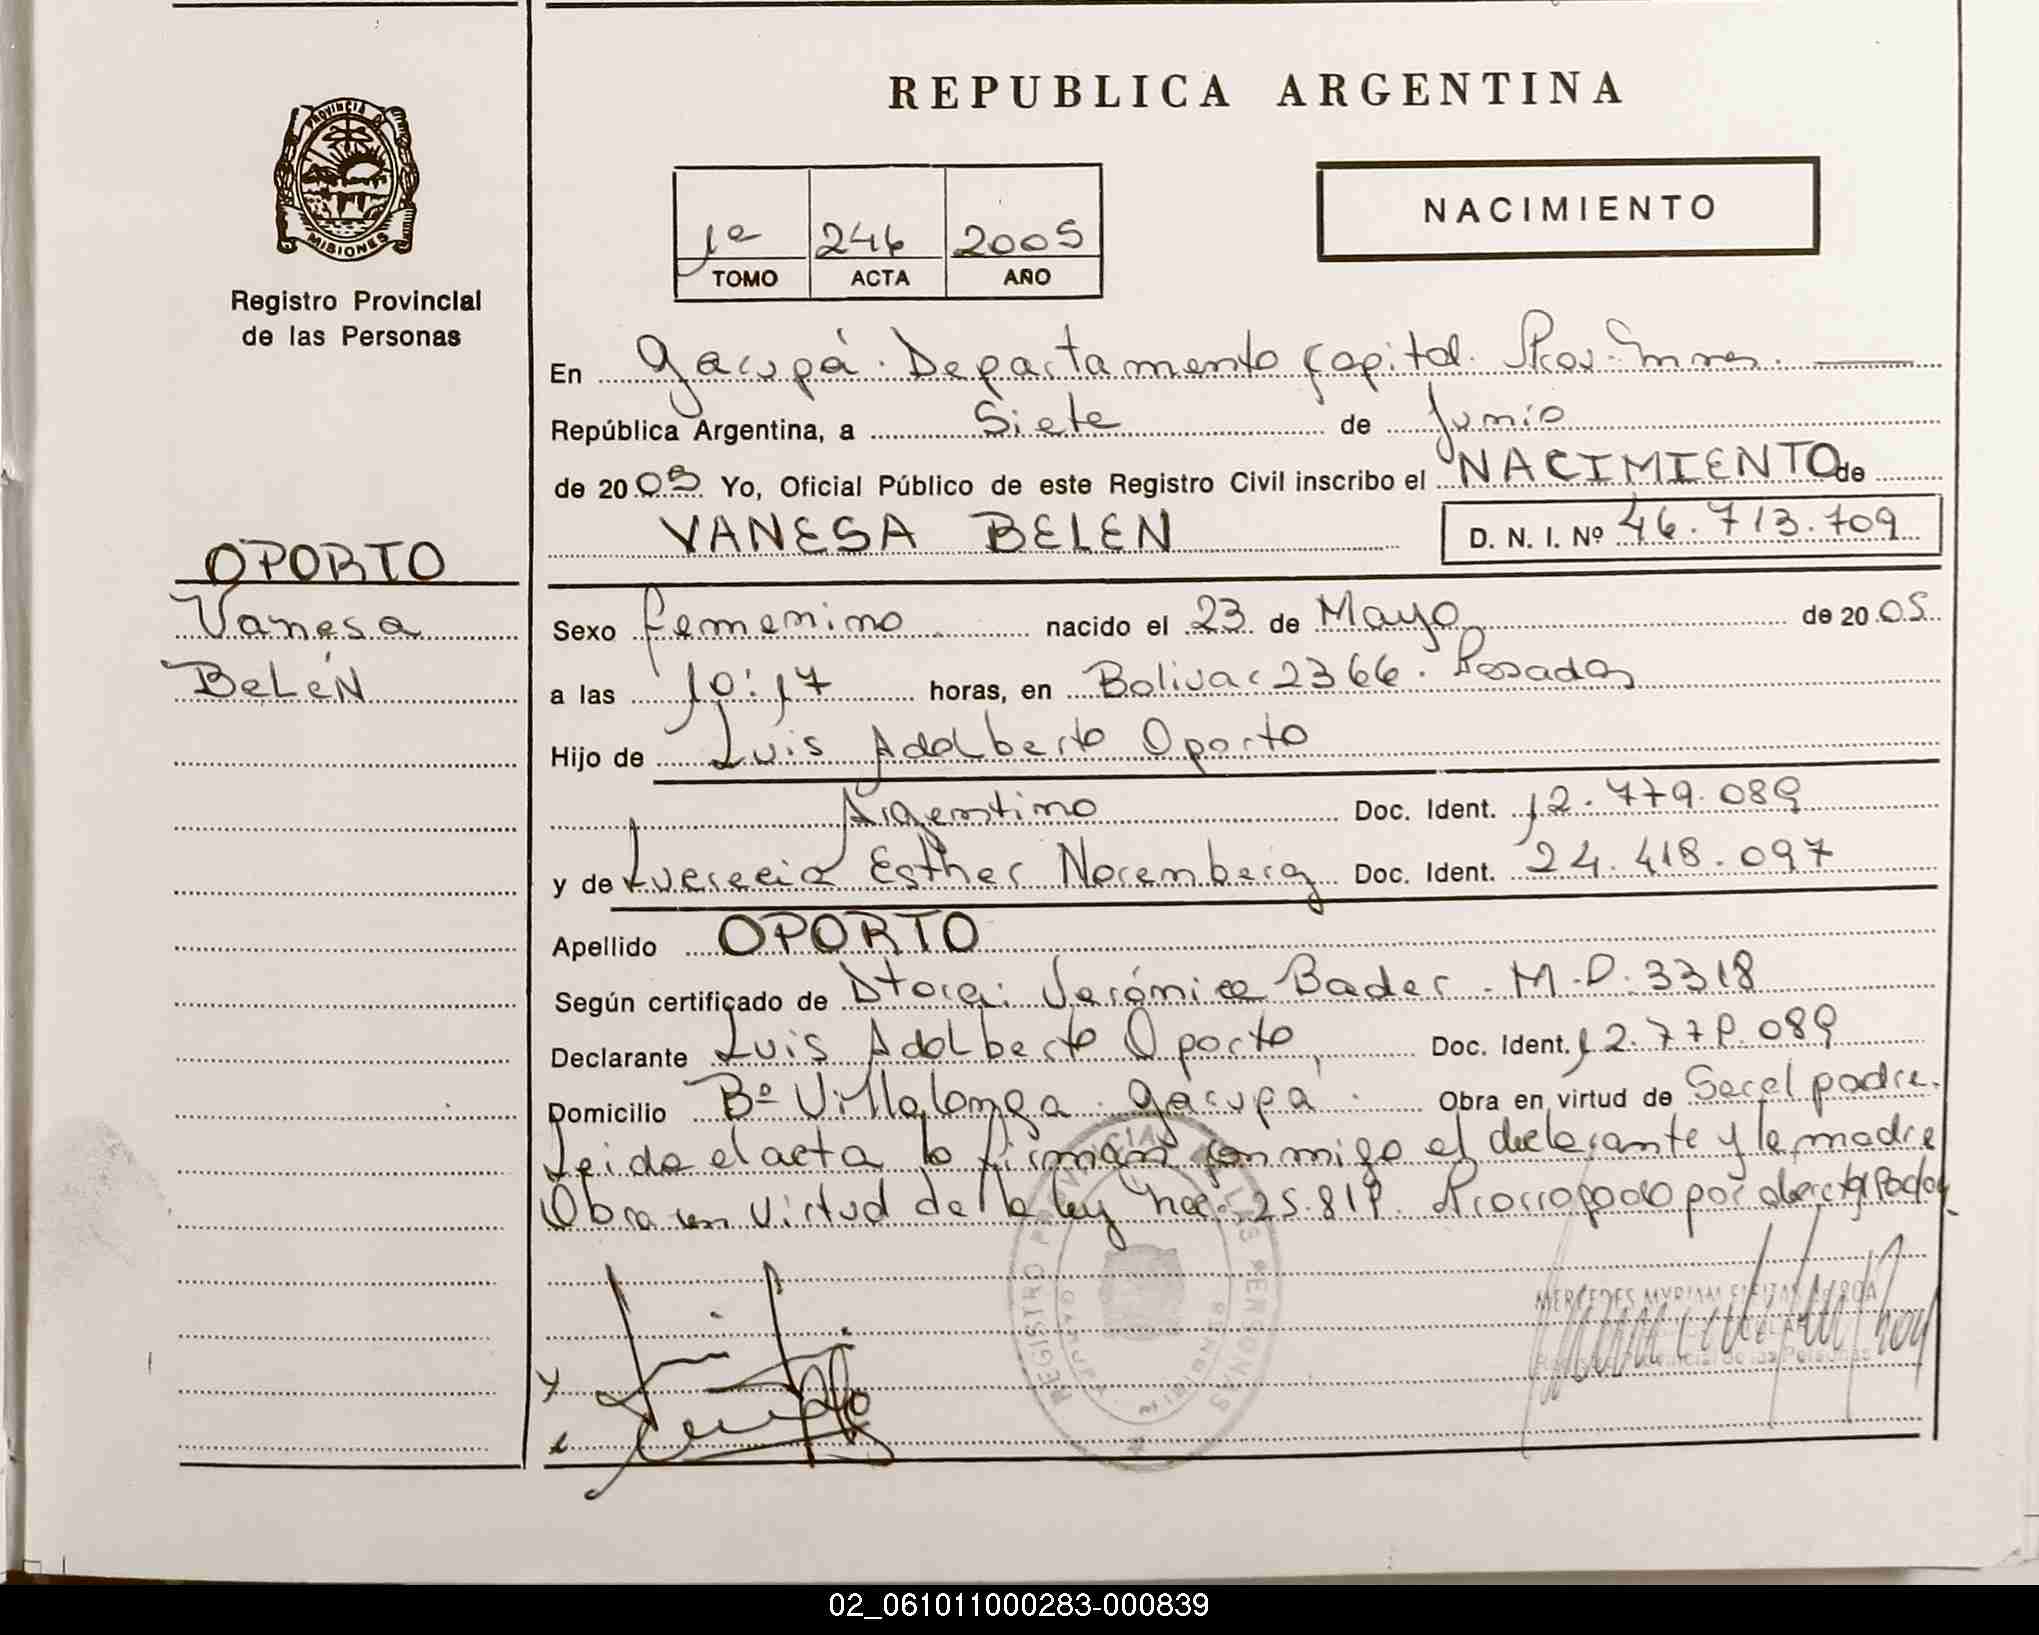 REPUBLICA ARGENTINA
PROVINCIA DE
MISIONES
Registro Provincial
de las Personas
1º 246 2005
TOMO ACTA AÑO
NACIMIENTO
En Garupá. Departamento Capital. Prov.
República Argentina, a Siete de Junio
de 2005 Yo, Oficial Público de este Registro Civil inscribo el NACIMIENTO de
VANESA BELEN D. N. I. Nº 46.713.709
OPORTO
Vanesa
BeLéN
Sexo femenino nacido el 23 de Mayo de 2005
a las 10:17 horas, en Bolivar 2366. Posadas
Hijo de Luis Adalberto Oporto
Argentino Doc. Ident. 12.779.089
y de Lucrecia Esther Noremberg Doc. Ident. 24.418.097
Apellido OPORTO
Según certificado de Dtora: Verónica Bader - M.P. 3318
Declarante Luis Adalberto Oporto, Doc. Ident. 12.779.089
Domicilio Bº Villalonga. Garupá. Obra en virtud de Ser el padre.
Leida el acta la firman conmigo el declarante y la madre
Obra en virtud de la ley nac. 25.819. Prorrogado por
REGISTRO PROVINCIAL DE LAS PERSONAS
02_061011000283-000839